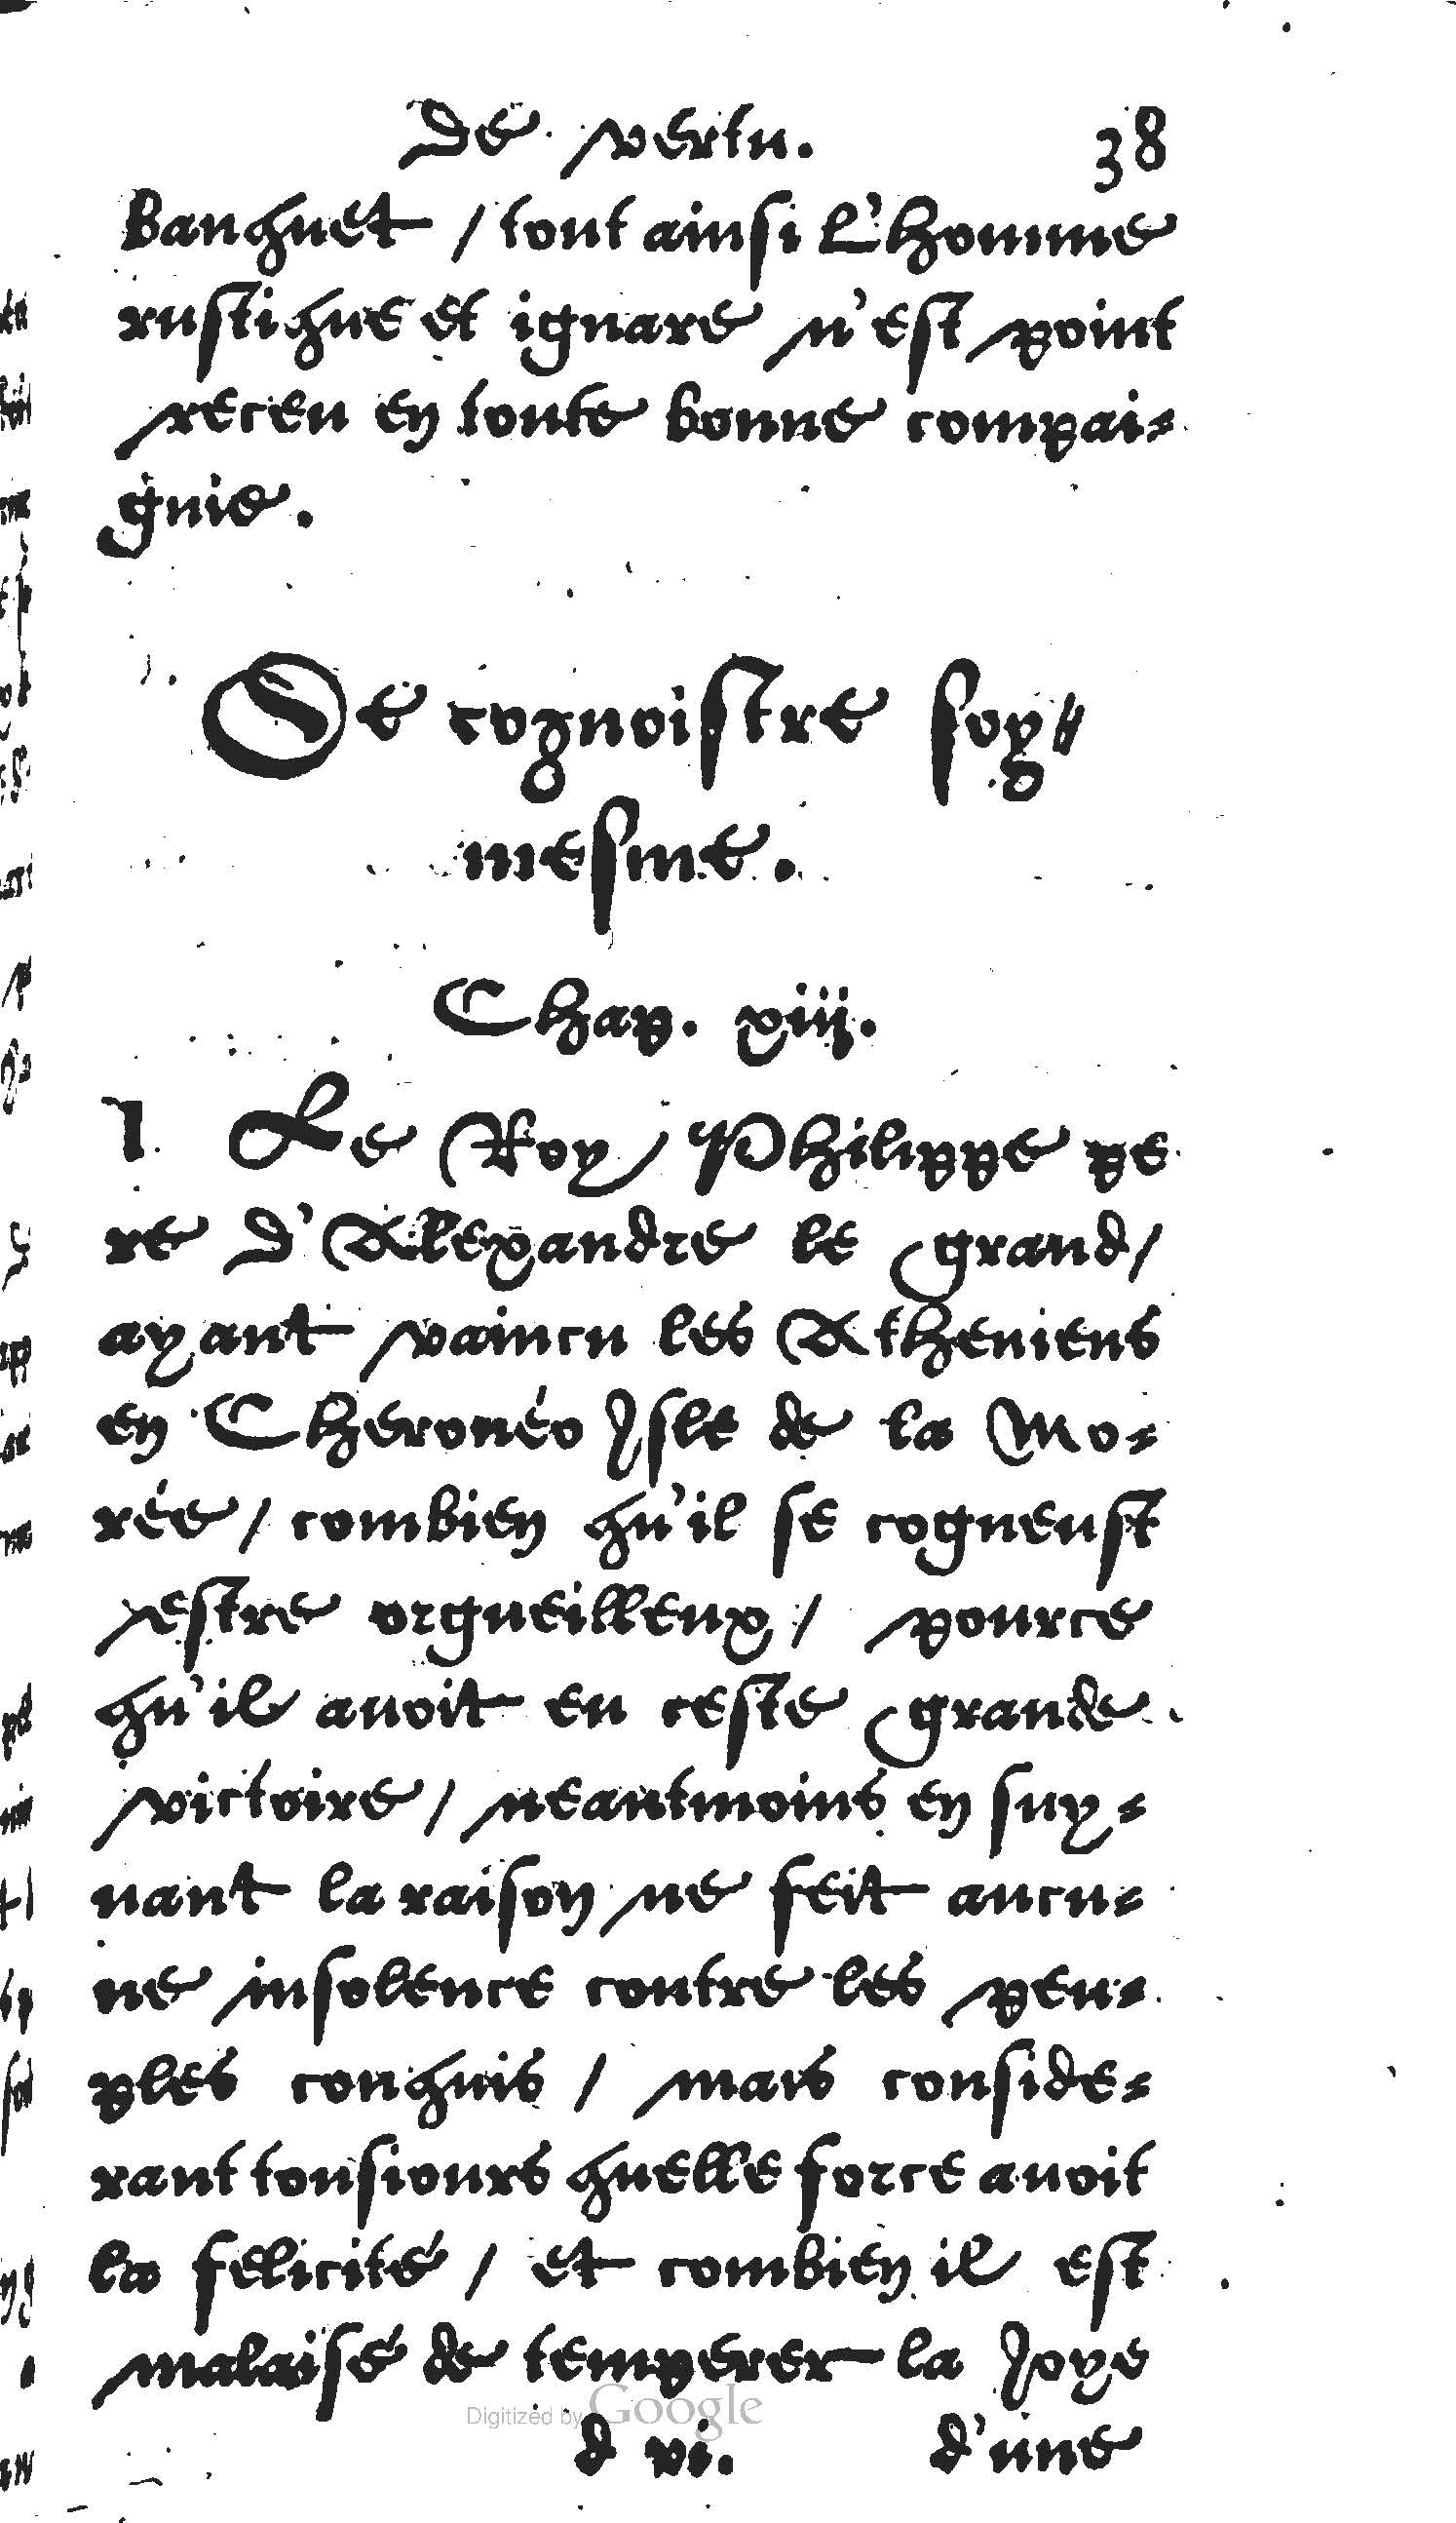 De vertu. 38
Banquet / tout ainsi L'homme
rustique et ignare n'est point
receu en toute bonne compai=
gnie.
De cognoistre soy=
mesme.
Chap. xiij.
1. Le Roy Philippe pe
re D'Alexandre le grand /
ayant vaincu les Atheniens
en Cheronéo Isle de la Mo=
rée / combien qu'il se cogneust
estre orgueilleux / pource
qu'il auoit eu ceste grande
victoire / neantmoins en suy=
uant la raison ne feit aucu=
ne insolence contre les peu=
ples conquis / mais conside=
rant tousiours quelle force auoit
la felicité / et combien il est
malaisé de temperer la Joye
Digitized by Google
d vi. d'une